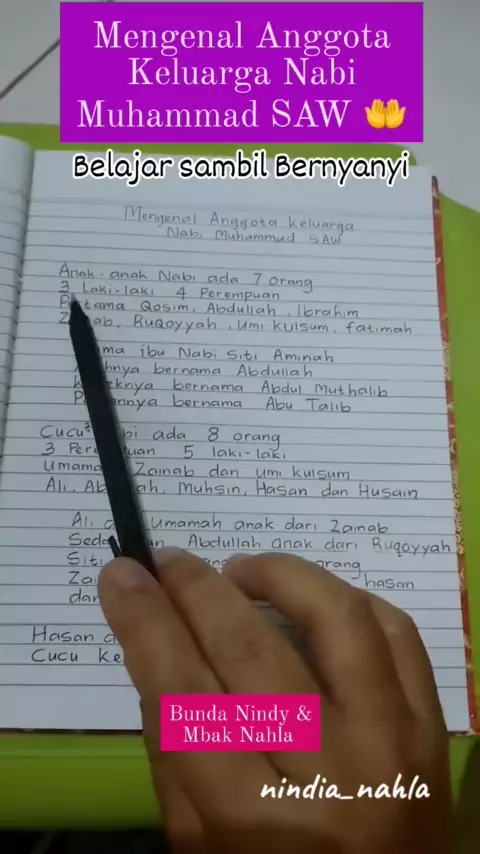 Mengenal Anggota
Keluarga Nabi
Muhammad SAW 🤲
Belajar sambil Bernyanyi
Mengenal Anggota keluarga
Nabi Muhammad SAW
Anak-anak Nabi ada 7 orang
3 Laki-laki 4 Perempuan
Qosim, Abdullah, Ibrahim
Ruqoyyah, umi kulsum, fatimah
ibu Nabi siti Aminah
bernama Abdullah
bernama Abdul Muthalib
bernama Abu Talib
Cucu² ada 8 orang
3 5 laki-laki
Zainab dan umi kulsum
Ali, Muhsin, Hasan dan Husain
Ali Umamah anak dari Zainab
Abdullah anak dari Ruqoyyah
hasan
Hasan
Cucu
Bunda Nindy &
Mbak Nahla
nindia_nahla